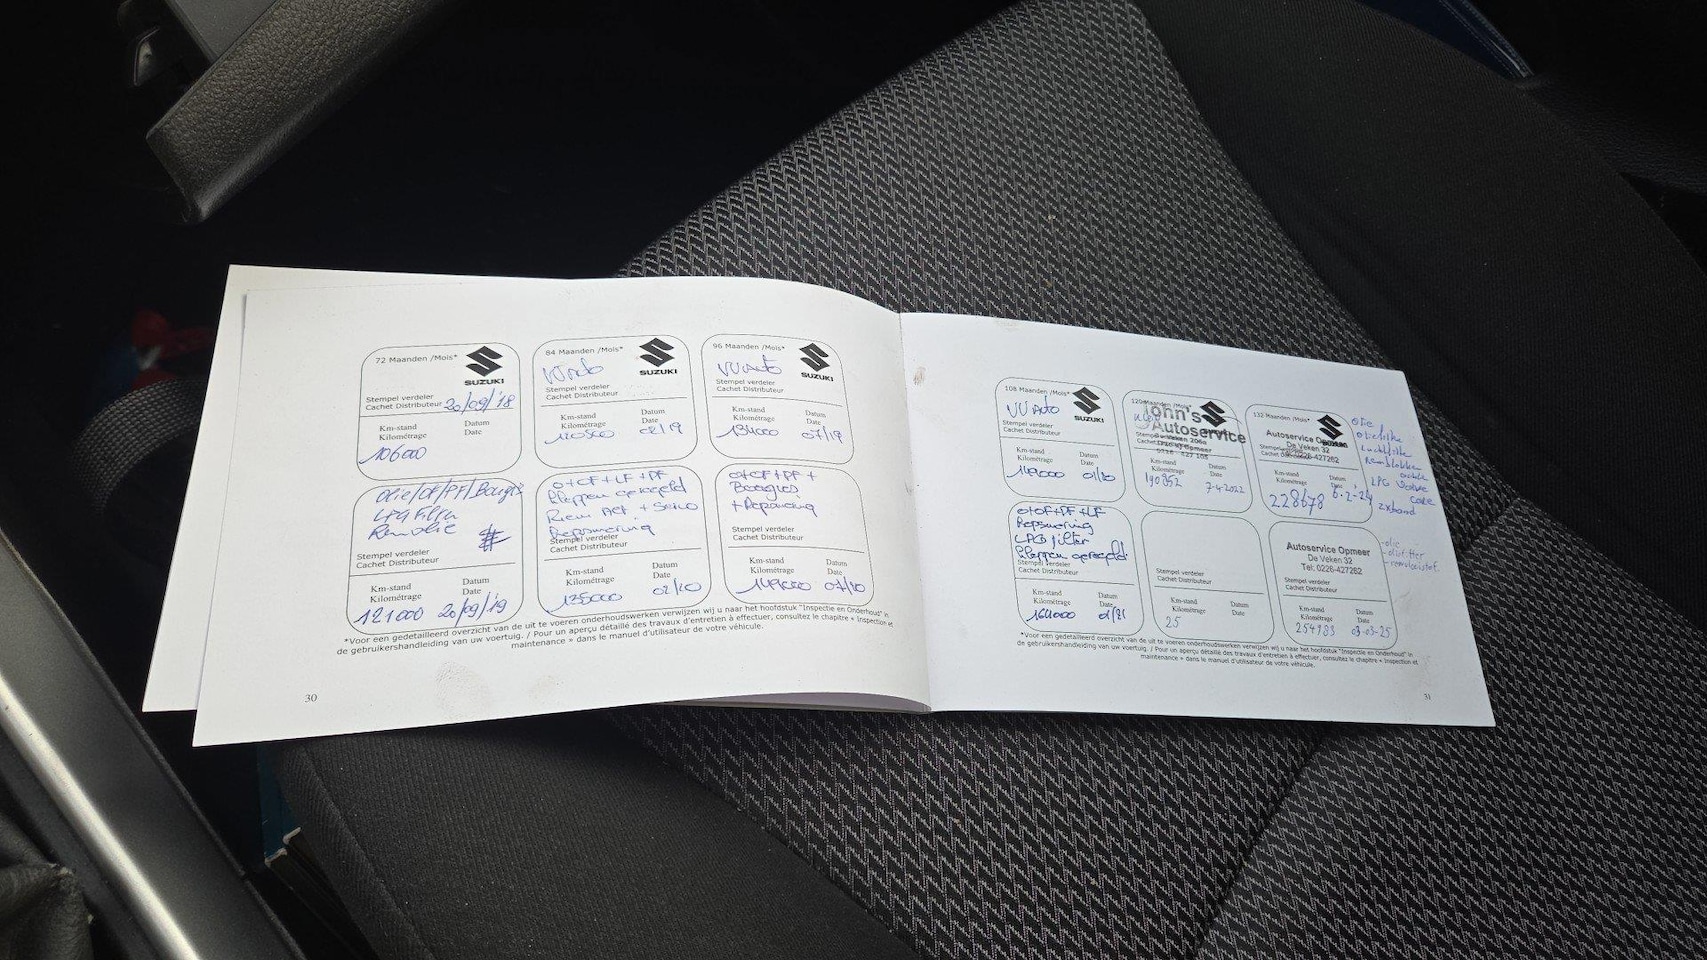 72 Maanden /Mois*
SUZUKI
Stempel verdeler
Cachet Distributeur 20/09/'18
Km-stand Datum
Kilométrage Date
106000
Olie/OF/PF/Bougies
LPG Filter
Remolie
Stempel verdeler
Cachet Distributeur
Km-stand Datum
Kilométrage Date
121000 20/09/'19
84 Maanden /Mois*
SUZUKI
Stempel verdeler
Cachet Distributeur
Km-stand Datum
Kilométrage Date
120500 02/19
O+OF+LF+PF
kleppen geregeld
Riem Act. +
Stempel verdeler
Cachet Distributeur
Km-stand Datum
Kilométrage Date
135000 02/20
96 Maanden /Mois*
VU Auto
SUZUKI
Stempel verdeler
Cachet Distributeur
Km-stand Datum
Kilométrage Date
134000 07/19
O+OF+PF+
Bougies
Stempel verdeler
Cachet Distributeur
Km-stand Datum
Kilométrage Date
149000
*Voor een gedetailleerd overzicht van de uit te voeren onderhoudswerken verwijzen wij u naar het hoofdstuk "Inspectie en Onderhoud" in
de gebruikershandleiding van uw voertuig. / Pour un aperçu détaillé des travaux d'entretien à effectuer, consultez le chapitre « Inspection et
maintenance » dans le manuel d'utilisateur de votre véhicule.
30
108 Maanden /Mois*
VU Auto
SUZUKI
Stempel verdeler
Cachet Distributeur
Km-stand Datum
Kilométrage Date
O+OF+PF+LF
LPG filter
kleppen geregeld
Stempel verdeler
Cachet Distributeur
Km-stand Datum
Kilométrage Date
164000 01/21
120 Maanden /Mois*
John's
Autoservice
De Veken 206a
Km-stand Datum
Kilométrage Date
190352 7-4-2022
Stempel verdeler
Cachet Distributeur
Km-stand Datum
Kilométrage Date
25
132 Maanden /Mois*
SUZUKI
Autoservice Opmeer
De Veken 32
0226-427262
Km-stand Datum
Kilométrage Date
228678 6-2-24
olie
oliefilter
luchtfilter
Remblokken
LPG
2x band
Autoservice Opmeer
De Veken 32
Tel: 0226-427262
Stempel verdeler
Cachet Distributeur
Km-stand Datum
Kilométrage Date
254983 03-03-25
-olie
-oliefilter
-remvloeistof
*Voor een gedetailleerd overzicht van de uit te voeren onderhoudswerken verwijzen wij u naar het hoofdstuk "Inspectie en Onderhoud" in
de gebruikershandleiding van uw voertuig. / Pour un aperçu détaillé des travaux d'entretien à effectuer, consultez le chapitre « Inspection et
maintenance » dans le manuel d'utilisateur de votre véhicule.
31